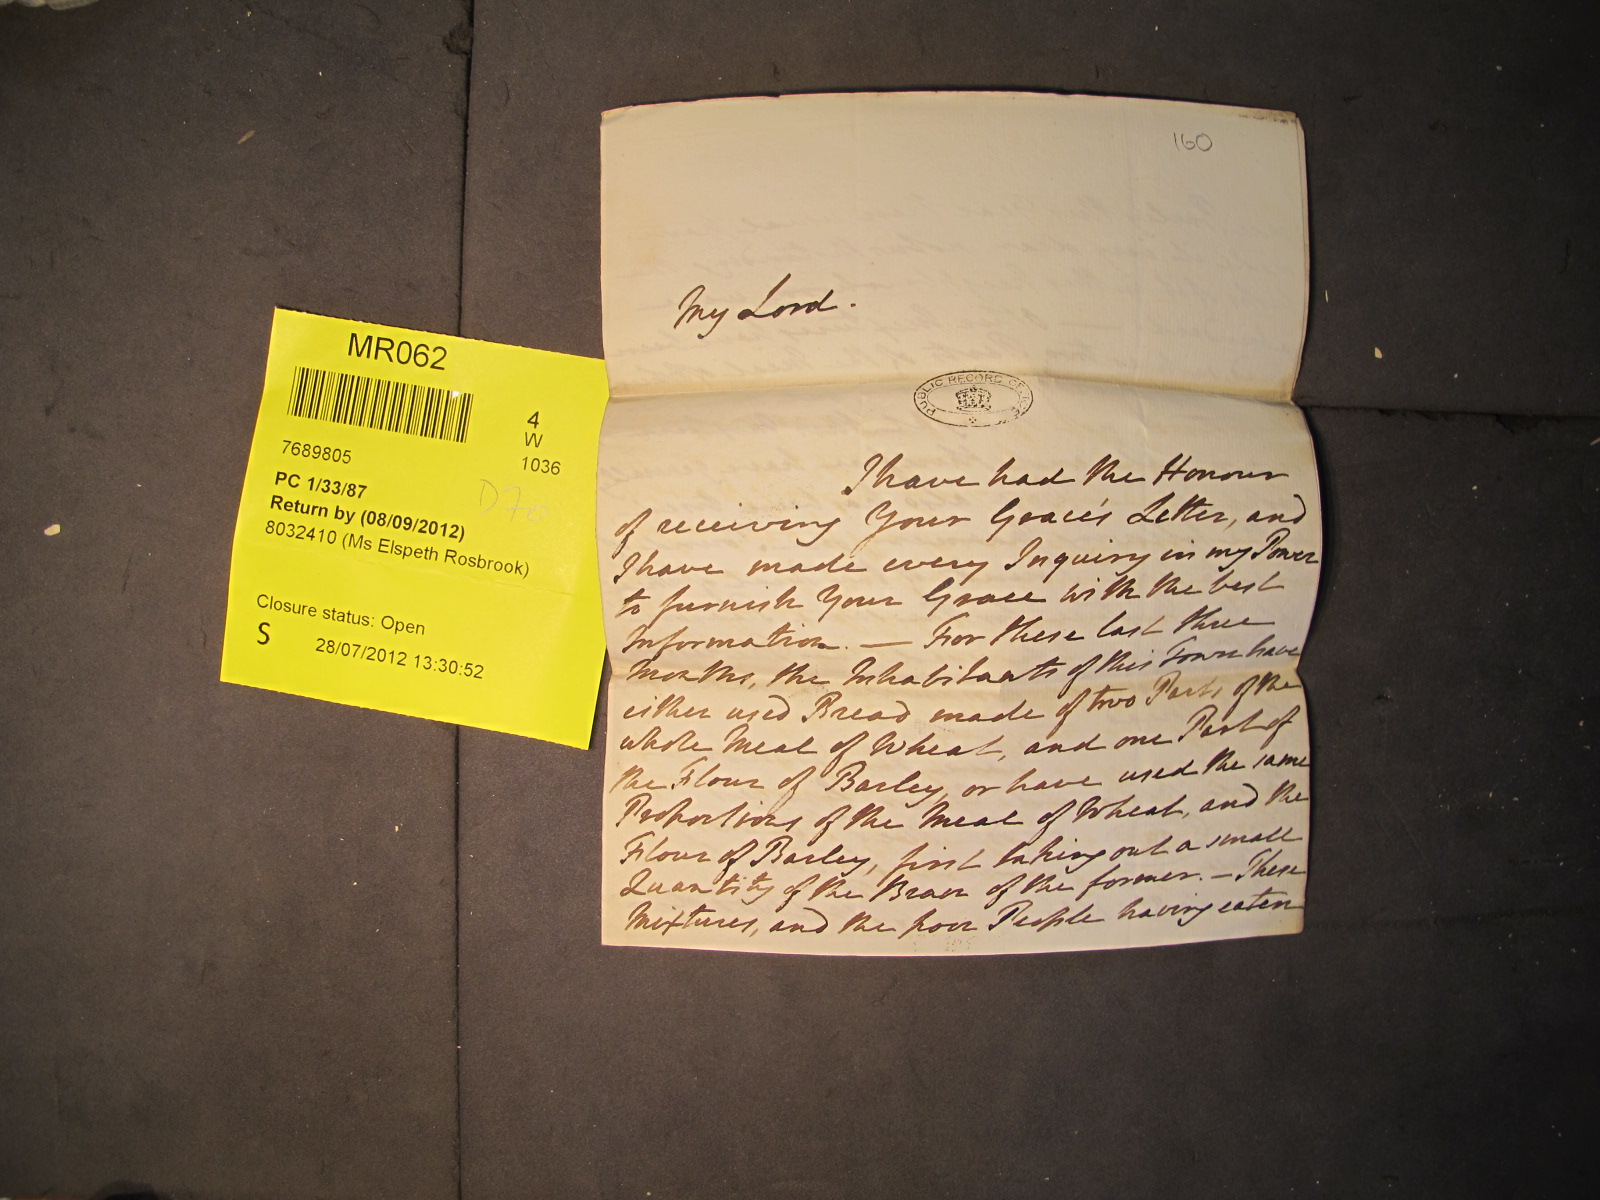 MR062
4
W
1036
7689805
PC 1/33/87
Return by (08/09/2012)
8032410 (Ms Elspeth Rosbrook)
Closure status: Open
S
28/07/2012 13:30:52
160
My Lord.
PUBLIC RECORD OFFICE
I have had the Honour
of receiving Your Grace's Letter, and
I have made every Inquiry in my Power
to furnish Your Grace with the best
Information. — For these last three
Months, the Inhabitants of this Town have
either used Bread made of two Parts of the
whole Meal of Wheat, and one Part of
the Flour of Barley, or have used the same
Proportions of the Meal of Wheat, and the
Flour of Barley, first taking out a small
Quantity of the Bran of the former. — These
Mixtures, and the poor People having eaten